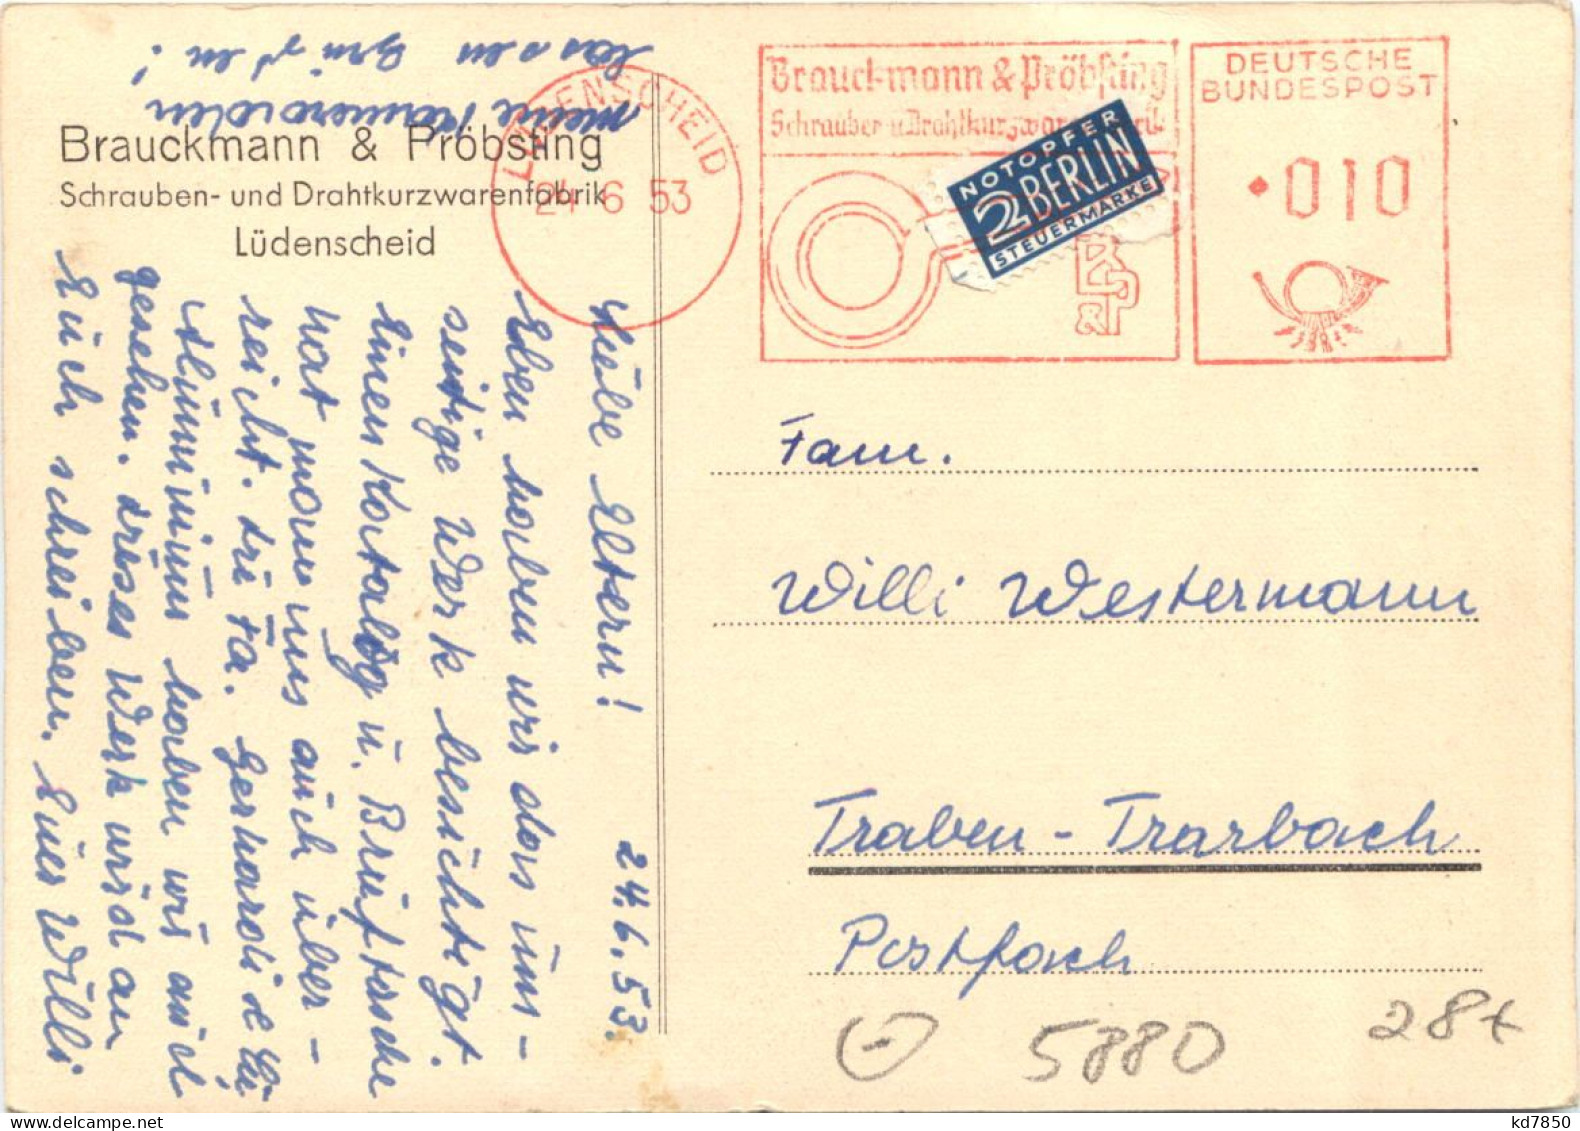 Brauckmann & Pröbsting
Schrauben- und Drahtkurzwarenfabrik
Lüdenscheid
LÜDENSCHEID
24 6 53
Brauckmann & Pröbsting
Schrauben- u Drahtkurzwarenfabrik
B&P
NOTOPFER
2 BERLIN
STEUERMARKE
DEUTSCHE
BUNDESPOST
010
24.6.53.
Liebe Eltern!
Eben haben wir das uns-
seitige Werk besichtigt.
Einen Katalog u. Brieftasche
hat man uns auch über-
reicht. Die Fa. Gerhardi &
Aluminium haben wir auch
gesehen. Dieses Werk wird an
Euch schreiben. Euer Willi
meine Kameraden
lassen grüßen!
Fam.
Willi Westermann
Traben-Trarbach
Postfach
5880
28x
kd7850